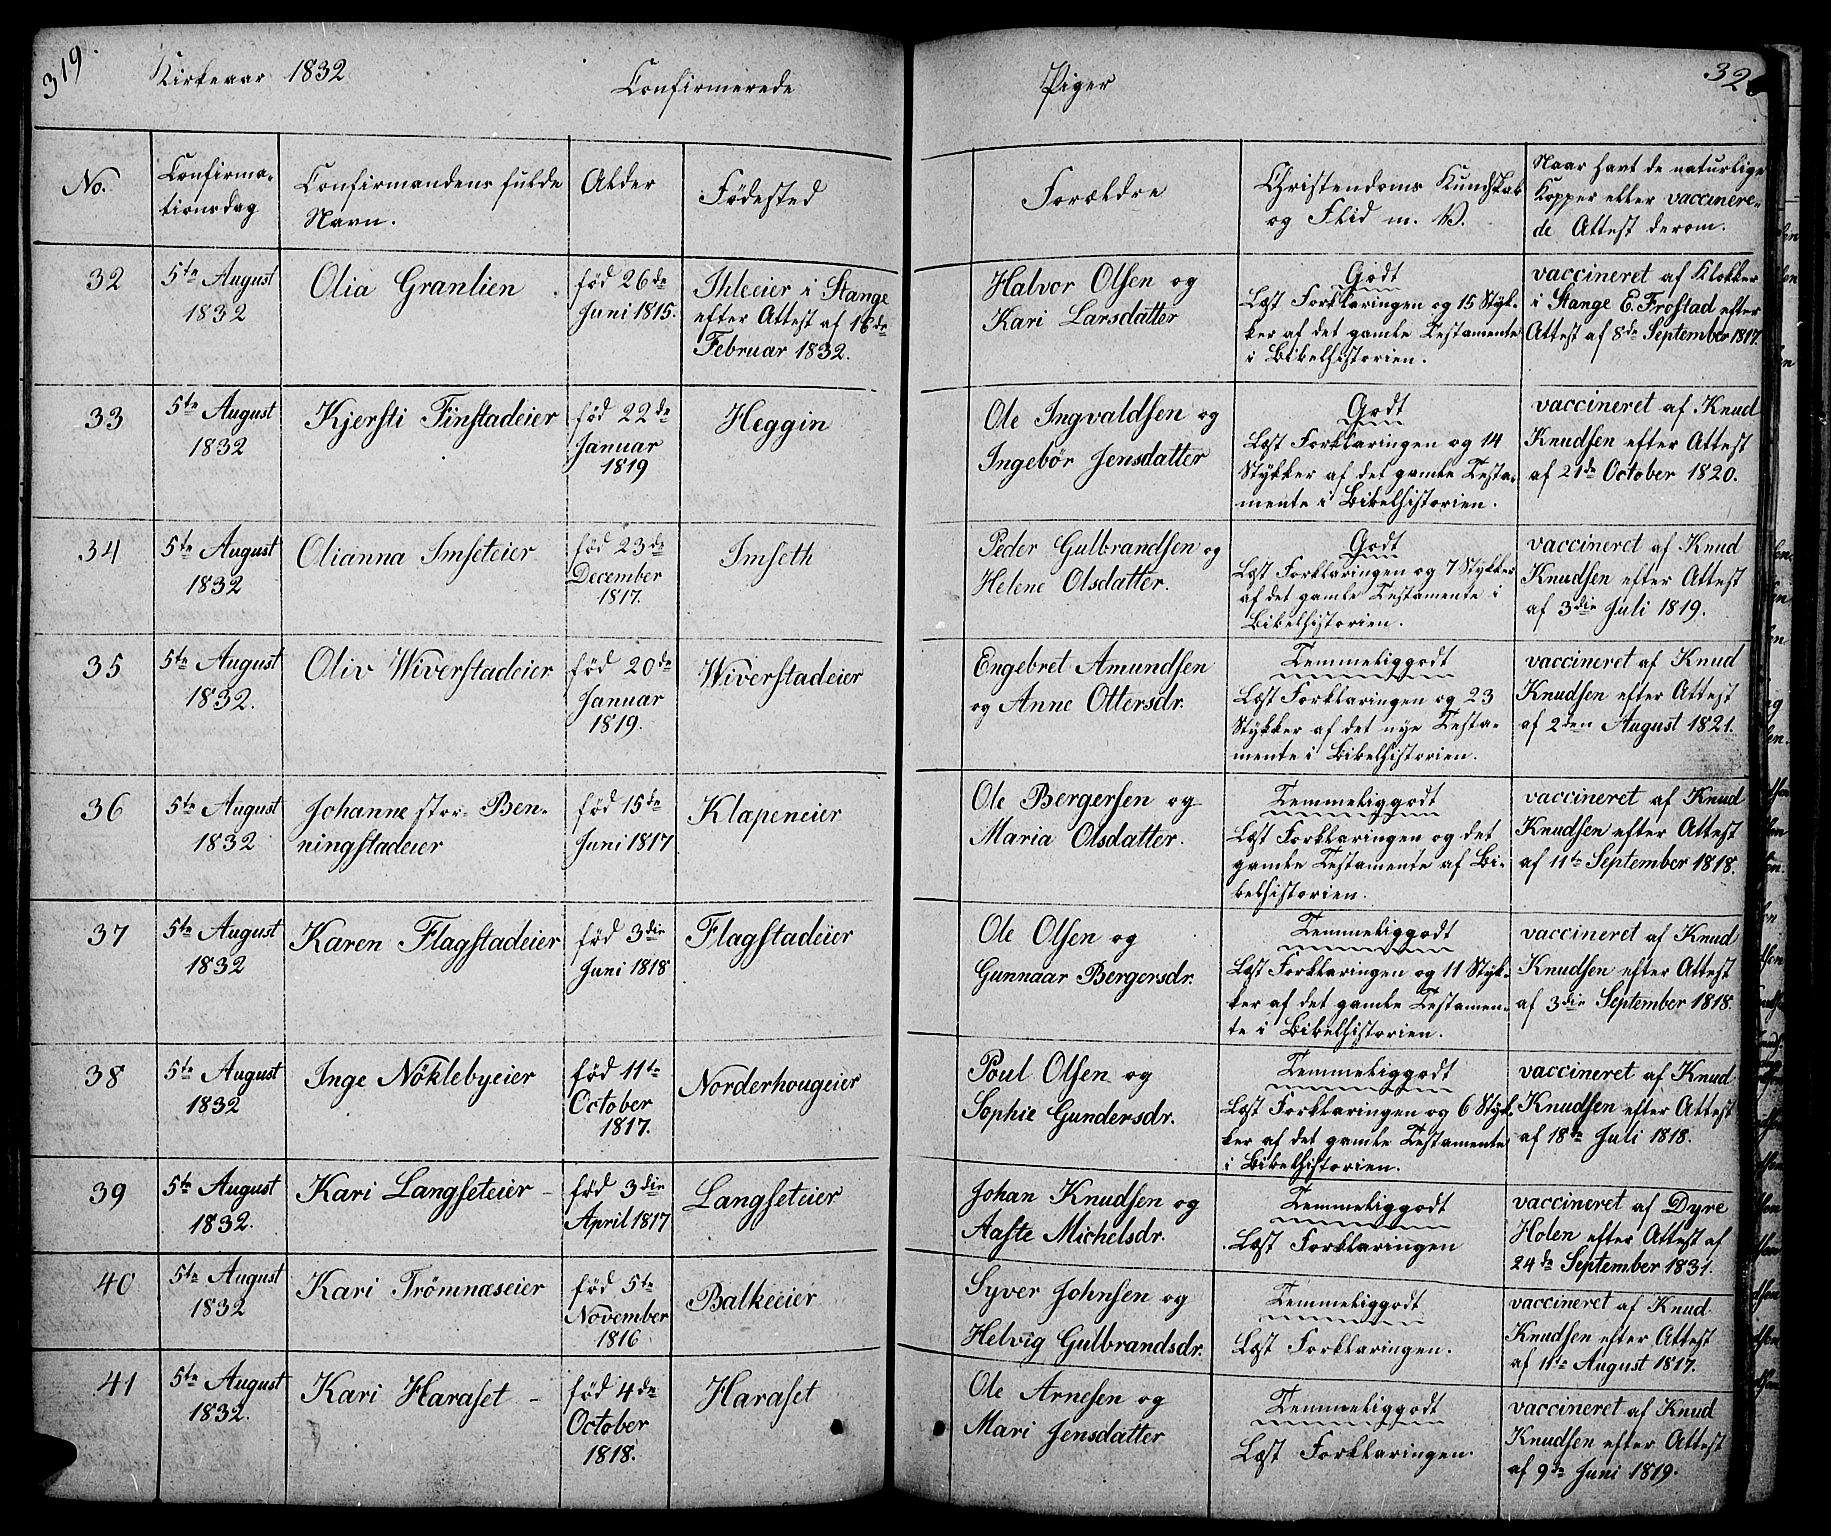 319.
Kirkeaar 1832
Confirmerede
Piger
32
No.
Confirma-
tionsdag
Confirmandens fulde
Navn.
Alder
Fødested
Forældre
Christendoms Kundskab
og Flid m. V.
Naar havt de naturlige
Kopper eller vaccinere-
de Attest derom.
32
5te August
1832
Olia Granlien
fød 26de
Juni 1815.
Ihleeier i Stange
efter Attest af 16de
Februar 1832.
Halvor Olsen og
Kari Larsdatter
Godt
Læst Forklaringen og 15 Styk-
ker af det gamle Testamente
i Bibelhistorien.
vaccineret af Klokker
i Stange E. Frostad efter
Attest af 8de September 1817.
33
5te August
1832
Kjersti Finstadeier
fød 22de
Januar
1819
Heggin
Ole Ingvaldsen og
Ingebør Jensdatter
Godt
Læst Forklaringen og 14
Stykker af det gamle Testa-
mente i Bibelhistorien.
vaccineret af Knud
Knudsen efter Attest
af 21de October 1820.
34
5te August
1832
Olianna Imseteier
fød 23de
December
1817.
Imseth
Peder Gulbrandsen og
Helene Olsdatter.
Godt
Læst Forklaringen og 7 Stykker
af det gamle Testamente i
Bibelhistorien.
vaccineret af Knud
Knudsen efter Attest
af 3die Juli 1819.
35
5te August
1832.
Oliv Wiverstadeier
fød 20de
Januar
1819.
Wiverstadeier
Engebret Amundsen
og Anne Ottersdr.
Temmeliggodt
Læst Forklaringen og 23
Stykker af det nye Testa-
mente i Bibelhistorien.
vaccineret af Knud
Knudsen efter Attest
af 2den August 1821.
36
5te August
1832
Johanne stor- Ben-
ningstadeier
fød 15de
Juni 1817
Klapeneier
Ole Bergersen og
Maria Olsdatter.
Temmeliggodt
Læst Forklaringen og det
gamle Testamente af Bi-
belhistorien.
vaccineret af Knud
Knudsen efter Attest
af 11te September 1818.
37
5te August
1832
Karen Flagstadeier
fød 3die
Juni 1818
Flagstadeier
Ole Olsen og
Gunnaar Bergersdr.
Temmeliggodt
Læst Forklaringen og 11 Styk-
ker af det gamle Testamen-
te i Bibelhistorien.
vaccineret af Knud
Knudsen efter Attest
af 3die September 1818.
38
5te August
1832
Inge Nöklebyeier
fød 11te
October
1817.
Norderhougeier
Poul Olsen og
Sophie Gundersdr.
Temmeliggodt
Læst Forklaringen og 6 Styk-
ker af det gamle Testamente
i Bibelhistorien.
vaccineret af Knud
Knudsen efter Attest
af 18de Juli 1818.
39
5te August
1832.
Kari Langseteier -
fød 3die
April 1817
Langseteier
Johan Knudsen og
Aaste Michelsdr.
Temmeliggodt
Læst Forklaringen
vaccineret af Dyre
Holen efter Attest af
24de September 1831.
40
5te August
1832
Kari Trömnæseier
fød 5te
November
1816
Balkeeier
Syver Johnsen og
Helvig Gulbrandsdr.
Temmeliggodt
Læst Forklaringen.
vaccineret af Knud
Knudsen efter Attest
af 11te August 1817.
41
5te August
1832.
Kari Haraset -
fød 4de
October
1818.
Haraset
Ole Arnesen og
Mari Jensdatter
Temmeliggodt
Læst Forklaringen.
vaccineret af Knud
Knudsen efter Attest
af 9de Juni 1819.